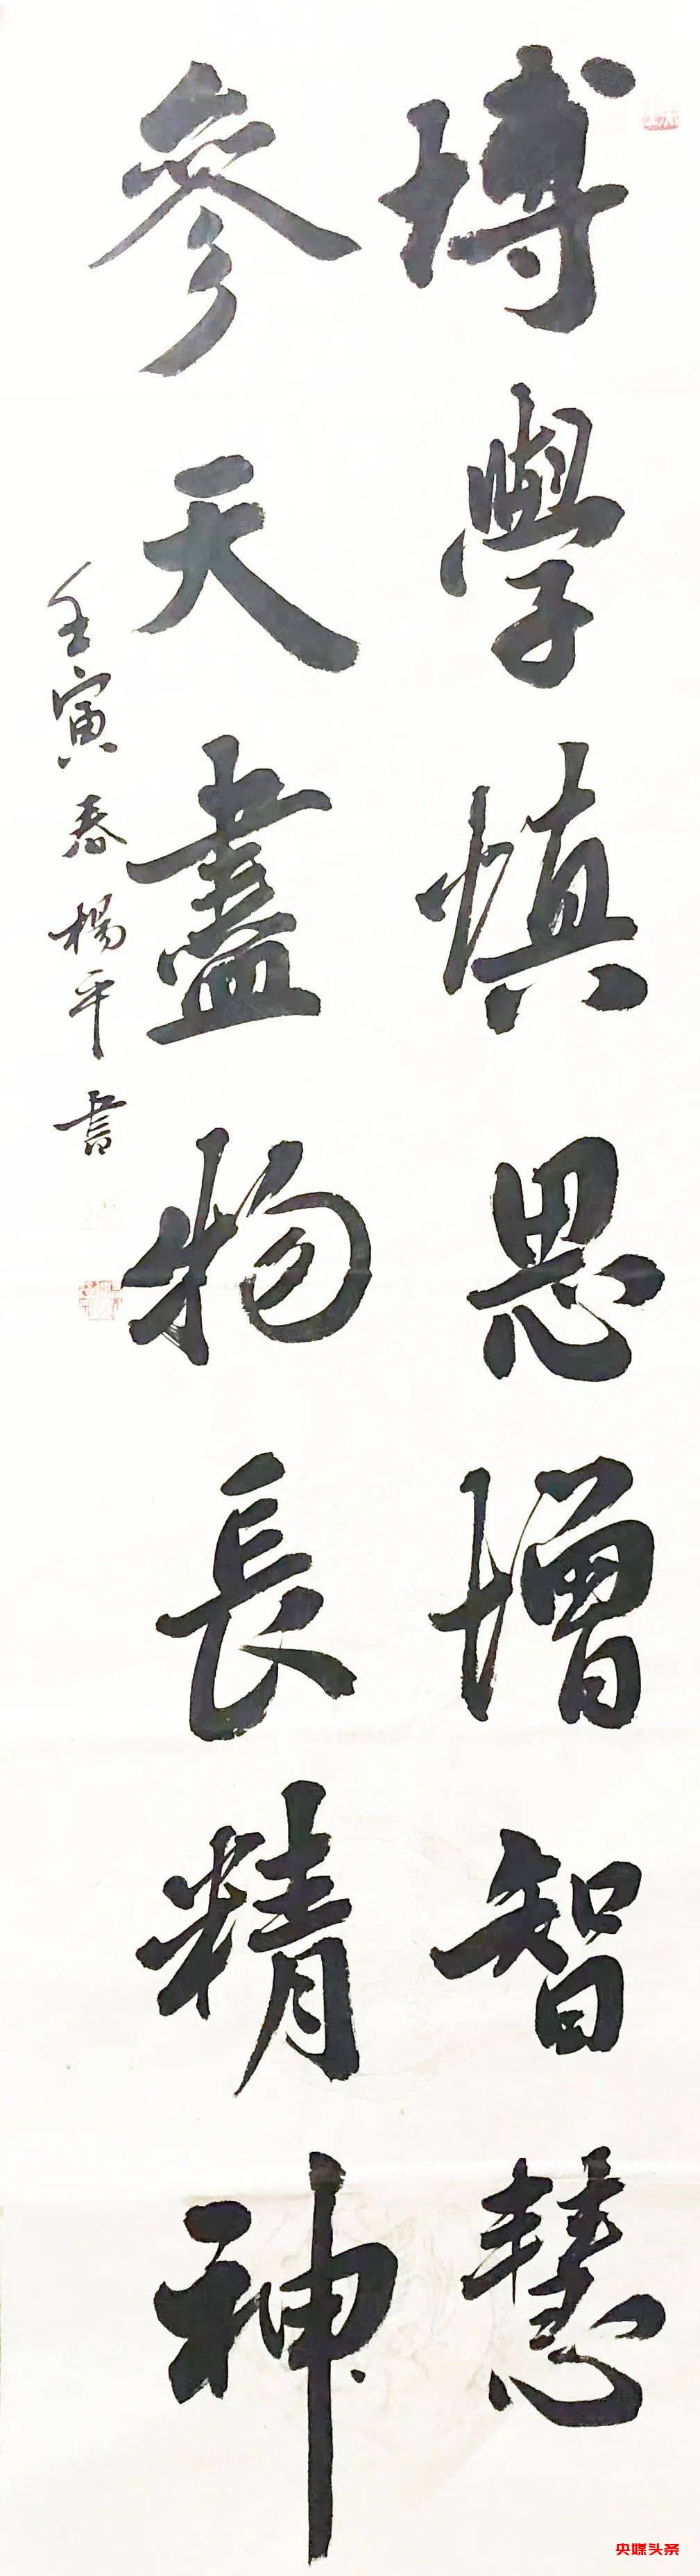 博學慎思增智慧
參天盡物長精神
壬寅春楊平書
央媒头条